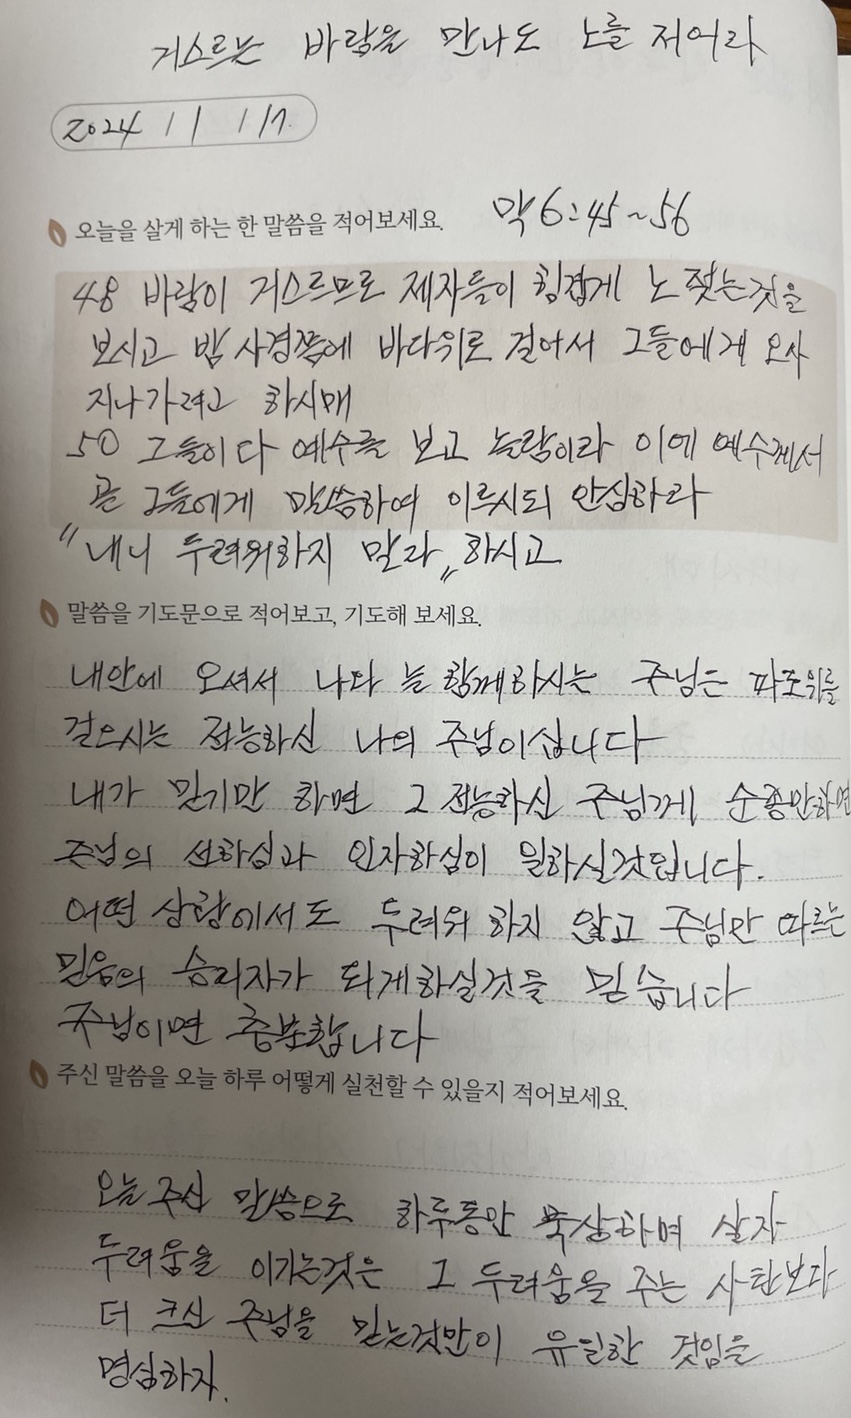 거스르는 바람을 만나도 노를 저어라
2024 / 1 / 17.
오늘을 살게 하는 한 말씀을 적어보세요. 막6:45~56
48 바람이 거스르므로 제자들이 힘겹게 노 젖는것을
보시고 밤 사경쯤에 바다위로 걸어서 그들에게 오사
지나가려고 하시매
50 그들이 다 예수를 보고 놀람이라 이에 예수께서
곧 그들에게 말씀하여 이르시되 안심하라
"내니 두려워하지 말라" 하시고
말씀을 기도문으로 적어보고, 기도해 보세요.
내안에 오셔서 나와 늘 함께하시는 주님은 파도위를
걸으시는 전능하신 나의 주님이십니다
내가 믿기만 하면 그 전능하신 주님께 순종만하면
주님의 선하심과 인자하심이 일하실것입니다.
어떤 상황에서도 두려워 하지 않고 주님만 따르는
믿음의 승리자가 되게하실것을 믿습니다
주님이면 충분합니다
주신 말씀을 오늘 하루 어떻게 실천할 수 있을지 적어보세요.
오늘 주신 말씀으로 하루동안 묵상하며 살자
두려움을 이기는것은 그 두려움을 주는 사탄보다
더 크신 주님을 믿는것만이 유일한 것임을
명심하자.